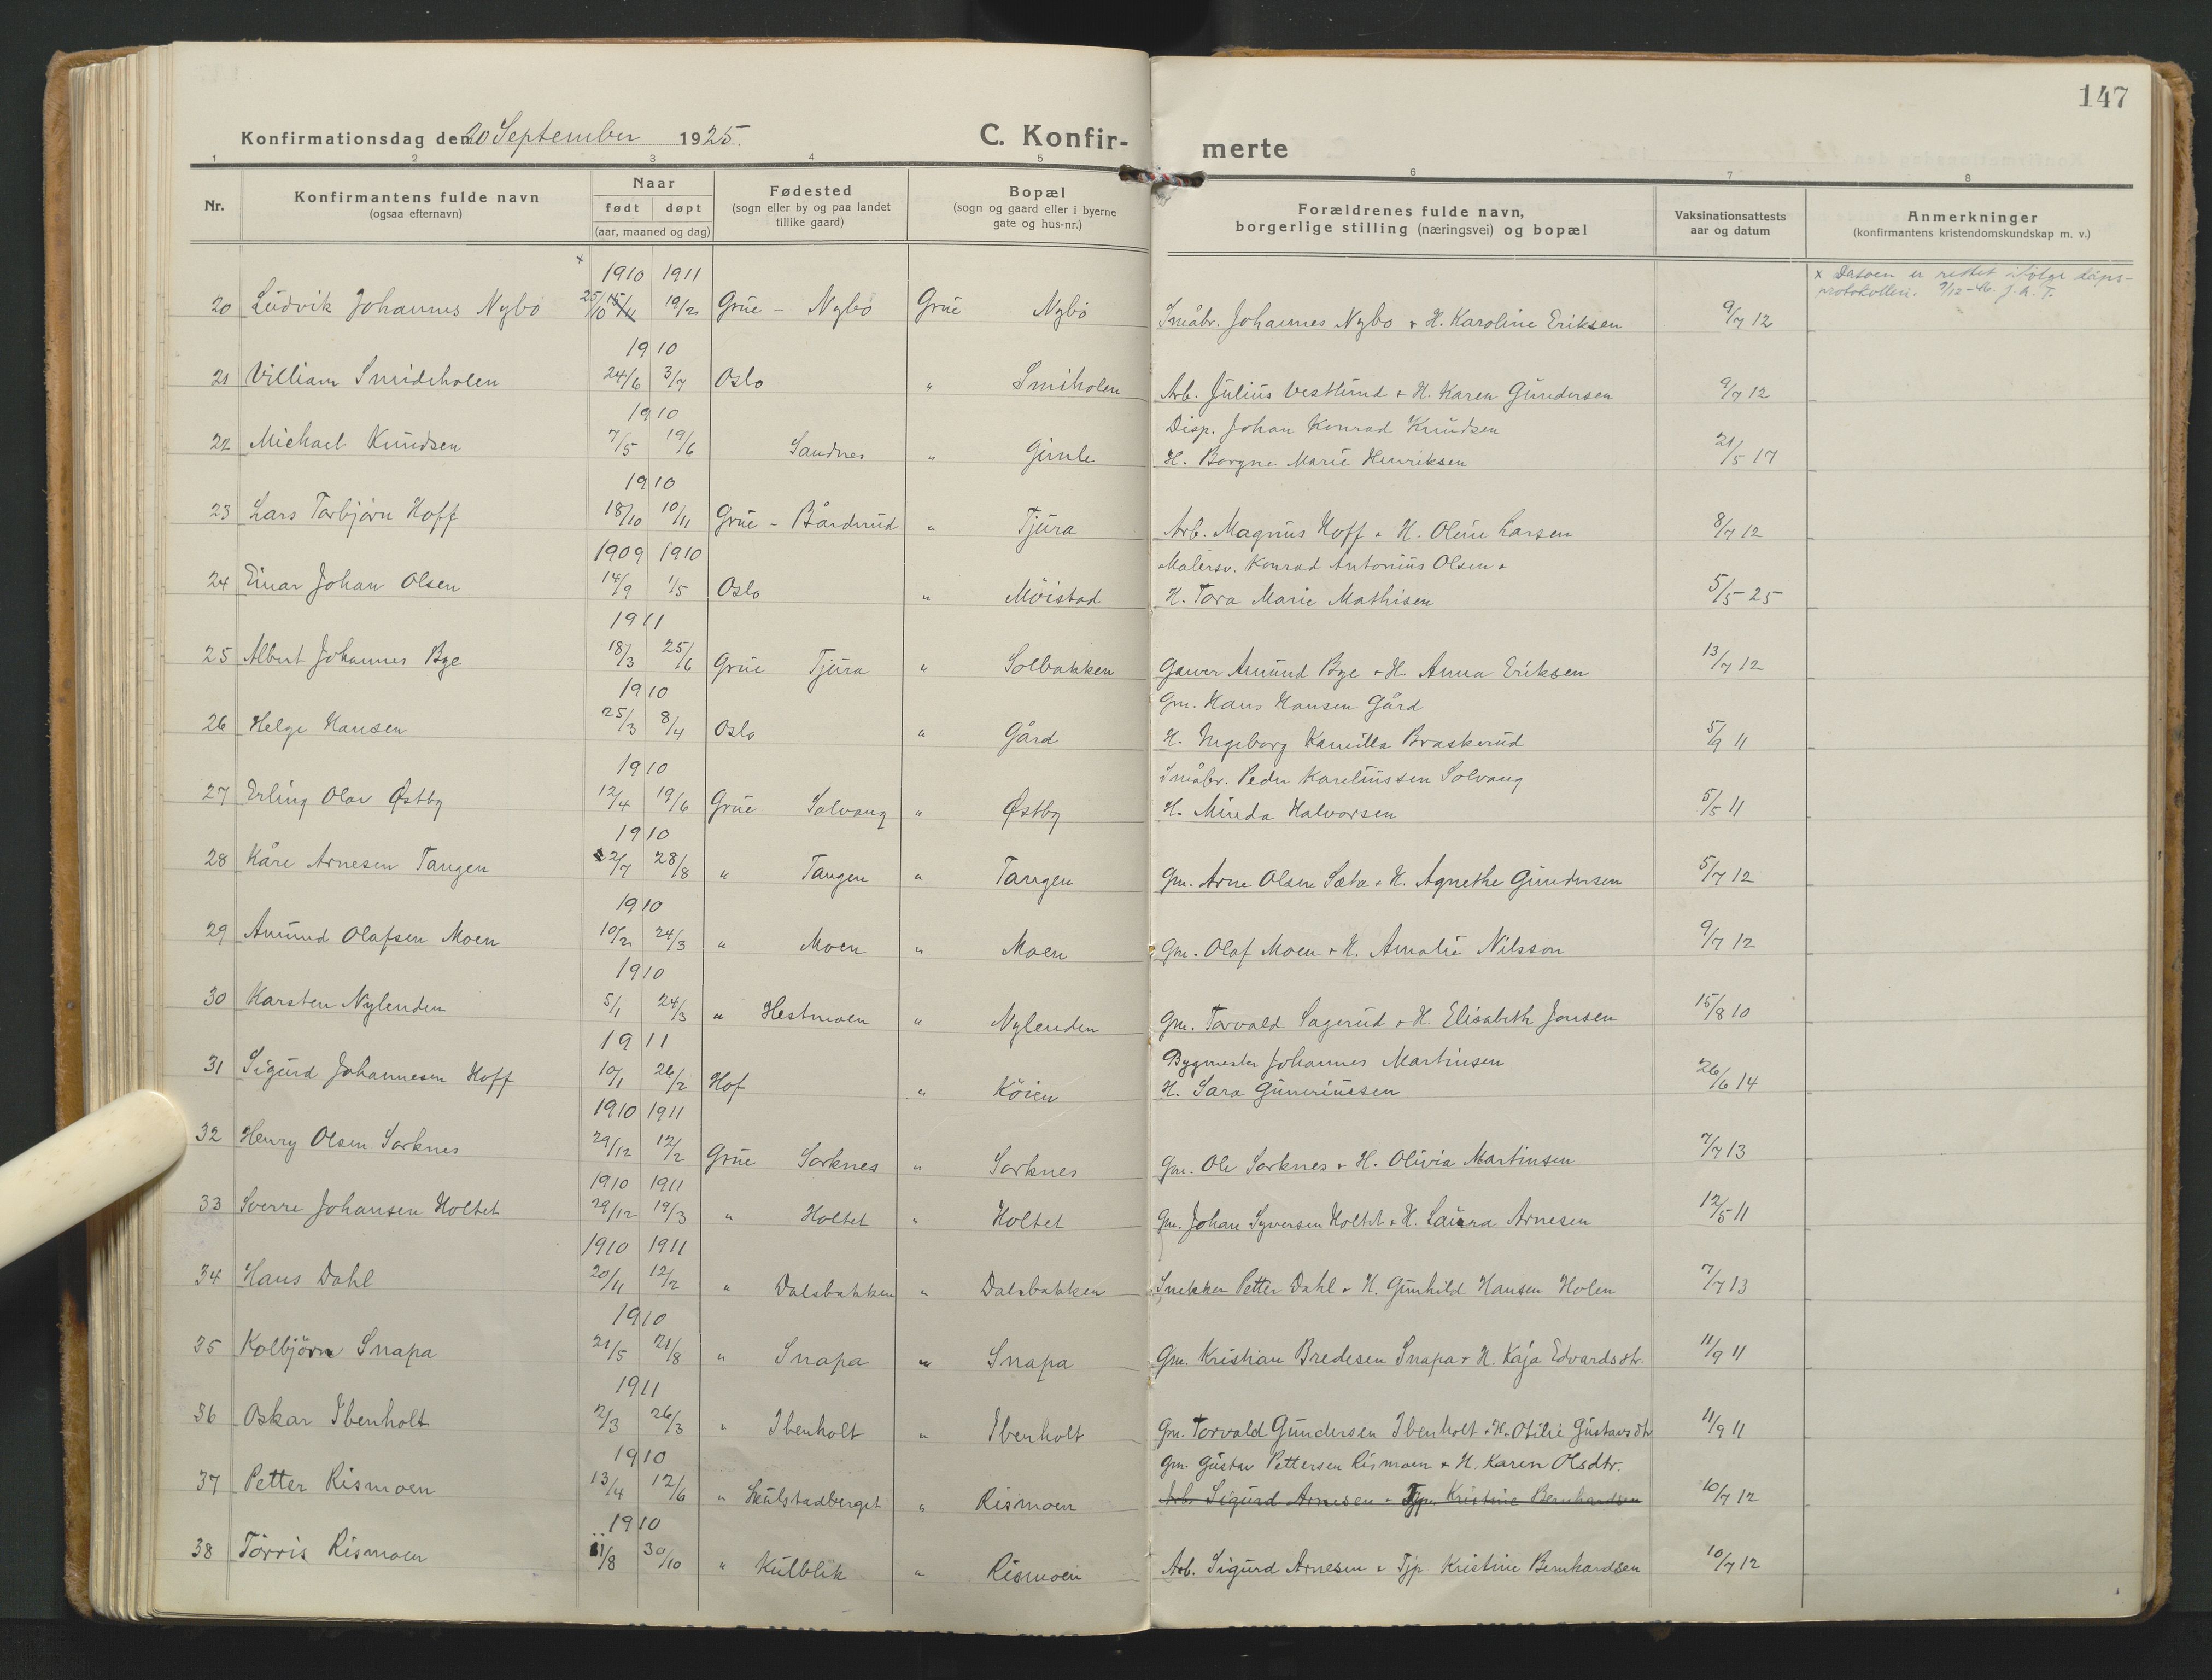 147
Konfirmationsdag den 20 September 1925.
C. Konfir- merte
1 2 3 4 5 6 7 8
Nr.
Konfirmantens fulde navn
(ogsaa efternavn)
Naar
født døpt
(aar, maaned og dag)
Fødested
(sogn eller by og paa landet
tillike gaard)
Bopæl
(sogn og gaard eller i byerne
gate og hus-nr.)
Forældrenes fulde navn,
borgerlige stilling (næringsvei) og bopæl
Vaksinationsattests
aar og datum
Anmerkninger
(konfirmantens kristendomskundskap m. v.)
x Datoen er rettet ifølge dåps-
protokollen. 9/12-46. J. A. T.
x 1910 1911
20 Ludvik Johannes Nybo 25/10 15/11 19/2 Grue - Nybo Grue Nybo Småbr. Johannes Nybo + H. Karoline Eriksen 9/7 12
1910
21 Villiam Smideholen 24/6 3/7 Oslo " Smiholen Arb. Julius Vestlund + H. Karen Gundersen 9/7 12
1910 Disp. Johan Konrad Knudsen
22 Michael Knudsen 7/5 19/6 Sandnes " Gimle H. Borgne Marie Henriksen 21/5 17
1910
23 Lars Torbjørn Hoff 18/10 10/11 Grue - Bårdrud " Tjura Arb. Magnus Hoff + H. Oline Larsen 8/7 12
1909 1910 Malersv. Konrad Antonius Olsen +
24 Einar Johan Olsen 14/9 1/5 Oslo " Möistad H. Tora Marie Mathisen 5/5-25
1911
25 Albert Johannes Bye 18/3 25/6 Grue Tjura " Solbakken Garver Amund Bye + H. Anna Eriksen 13/7 12
1910 Gm. Hans Hansen Gård
26 Helge Hansen 25/3 8/4 Oslo " Gård H. Ingeborg Kamilla Braskerud 5/9 11
1910 Småbr. Peder Kareliussen Solvang
27 Erling Olav Østby 12/4 19/6 Grue Solvang " Østby H. Mineda Halvorsen 5/5 11
1910
28 Kåre Arnesen Tangen 22/7 28/8 " Tangen " Tangen Gm. Arne Olsen Sæta + H. Agnethe Gundersen 5/7 12
1910
29 Amund Olafsen Moen 10/2 24/3 " Moen " Moen Gm. Olaf Moen + H. Amalie Nilsson 9/7 12
1910
30 Karsten Nylenden 5/1 24/3 " Hestmoen " Nylenden Gm. Torvald Sagerud + H. Elisabeth Jonsen 15/8 10
1911 Bygmester Johannes Martinsen
31 Sigurd Johannesen Hoff 10/1 26/2 Hof " Köien H. Sara Guneriussen 26/6 14
1910 1911
32 Henry Olsen Sorknes 29/12 12/2 Grue Sorknes " Sorknes Gm. Ole Sorknes + H. Olivia Martinsen 7/7 13
1910 1911
33 Sverre Johansen Holtet 29/12 19/3 " Holtet " Holtet Gm. Johan Syversen Holtet + H. Laura Arnesen 12/5 11
1910 1911
34 Hans Dahl 20/11 12/2 " Dalsbakken " Dalsbakken Snekker Petter Dahl + H. Gunhild Hansen Holen 7/7 13
1910
35 Kolbjörn Snapa 21/5 21/8 " Snapa " Snapa Gm. Kristian Bredesen Snapa + H. Kaja Edvardsdtr. 11/9 11
1911
36 Oskar Ibenholt 2/3 26/3 " Ibenholt " Ibenholt Gm. Torvald Gundersen Ibenholt + H. Otilie Gustavsdtr 11/9 11
1910 Gm. Gustav Pettersen Rismoen + H. Karen Olsdtr.
37 Petter Rismoen 13/4 12/6 " Skulstadberget " Rismoen Arb. Sigurd Arnesen + Tjp. Kristine Bernhardsen 10/7 12
1910
38 Torris Rismoen 11/8 30/10 " Kulblik " Rismoen Arb. Sigurd Arnesen + Tjp. Kristine Bernhardsen 10/7 12